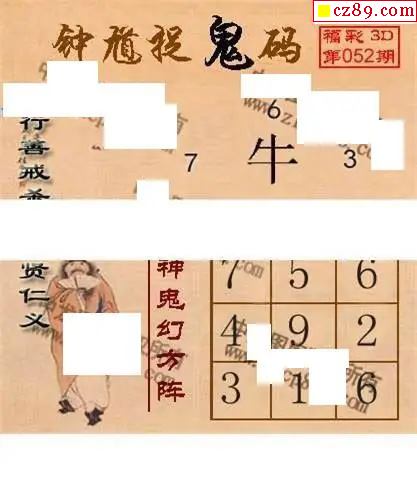 cz89.com
钟馗捉鬼码
福彩 3D
第052期
6
7 牛 3
行善戒
贤仁义
神鬼幻方阵
7 5 6
4 9 2
3 1 6